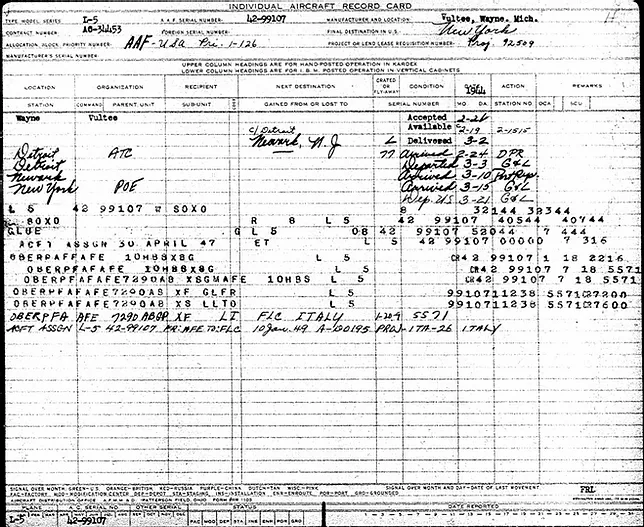 INDIVIDUAL AIRCRAFT RECORD CARD
TYPE MODEL SERIES L-5 A.A.F. SERIAL NUMBER: 42-99107 MANUFACTURER AND LOCATION Vultee, Wayne, Mich.
CONTRACT NUMBER AC-34453 FOREIGN SERIAL NUMBER: FINAL DESTINATION IN U.S. New York
ALLOCATION BLOCK PRIORITY NUMBER: AAF-USA Pri. 1-126 PROJECT OR LEND LEASE REQUISITION NUMBER: Proj 92509
MANUFACTURER'S SERIAL NUMBER:
UPPER COLUMN HEADINGS ARE FOR HAND POSTED OPERATION IN KARDEX
LOWER COLUMN HEADINGS ARE FOR I.B.M. POSTED OPERATION IN VERTICAL CABINETS
LOCATION ORGANIZATION RECIPIENT NEXT DESTINATION CRATED OR FLY-AWAY CONDITION 1944 ACTION REMARKS
STATION COMMAND PARENT UNIT SUB-UNIT GAINED FROM OR LOST TO SERIAL NUMBER MO DA STATION NO.
Wayne Vultee Accepted 2-26
Available 2-19 2-1515
c/o Detroit
Newark, N.J. L Delivered 3-2
Detroit ATC 77 Arrived 2-24 DPR
Detroit Departed 3-3 G&L
Newark Arrived 3-10
New York POE Arrived 3-15 G&L
Dep. US 3-21 G&L
L 5 42 99107 W SOXO 8 32144 32344
SOXO R 8 L 5 42 99107 40544 40744
GLUE G L 5 08 42 99107 52044 7 444
ACFT ASSGN 30 APRIL 47 ET L 5 42 99107 00000 7 316
OBERPFAFFAFE 10HBSX8G L 5 CR42 99107 1 18 2216
OBERPFAFAFE 10HBSX8G L 5 CR42 99107 7 18 5571
OBERPFAFAFE7290AB XSGMAFE 10HBS L 5 CR42 99107 7 18 5571
OBERPFAFAFE7290AB XF GLFR L 5 9910711238 5571CR7200
OBERPFAFAFE7290AB XS LLTO L 5 9910711238 5571CR7600
OBERPFA AFE 7290 ABGP XF LT FLC ITALY 5571
ACFT ASSGN L-5 42-99107 FR: AFE TO: FLC 10 Jan. 49 A-120195 PROJ-ITA-26 ITALY
AIRCRAFT DISTRIBUTION OFFICE PATTERSON FIELD, OHIO
FRL
PLANE A.C. SERIAL NO. OTHER SERIAL STATUS DATE REPORTED
L-5 42-99107 FAC MOD DEP STA INS ENR POR GRO